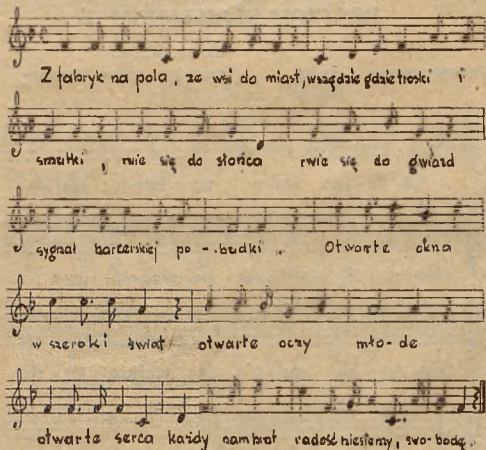 Z fabryk na pola, ze wsi do miast, wszędzie gdzie troski i
smutki, rwie się do słońca rwie się do gwiazd
sygnał harcerskiej po-budki. Otwarte okna
w szeroki świat otwarte oczy mło-de
otwarte serca każdy nam brat radość niesiemy, swo-bodę.